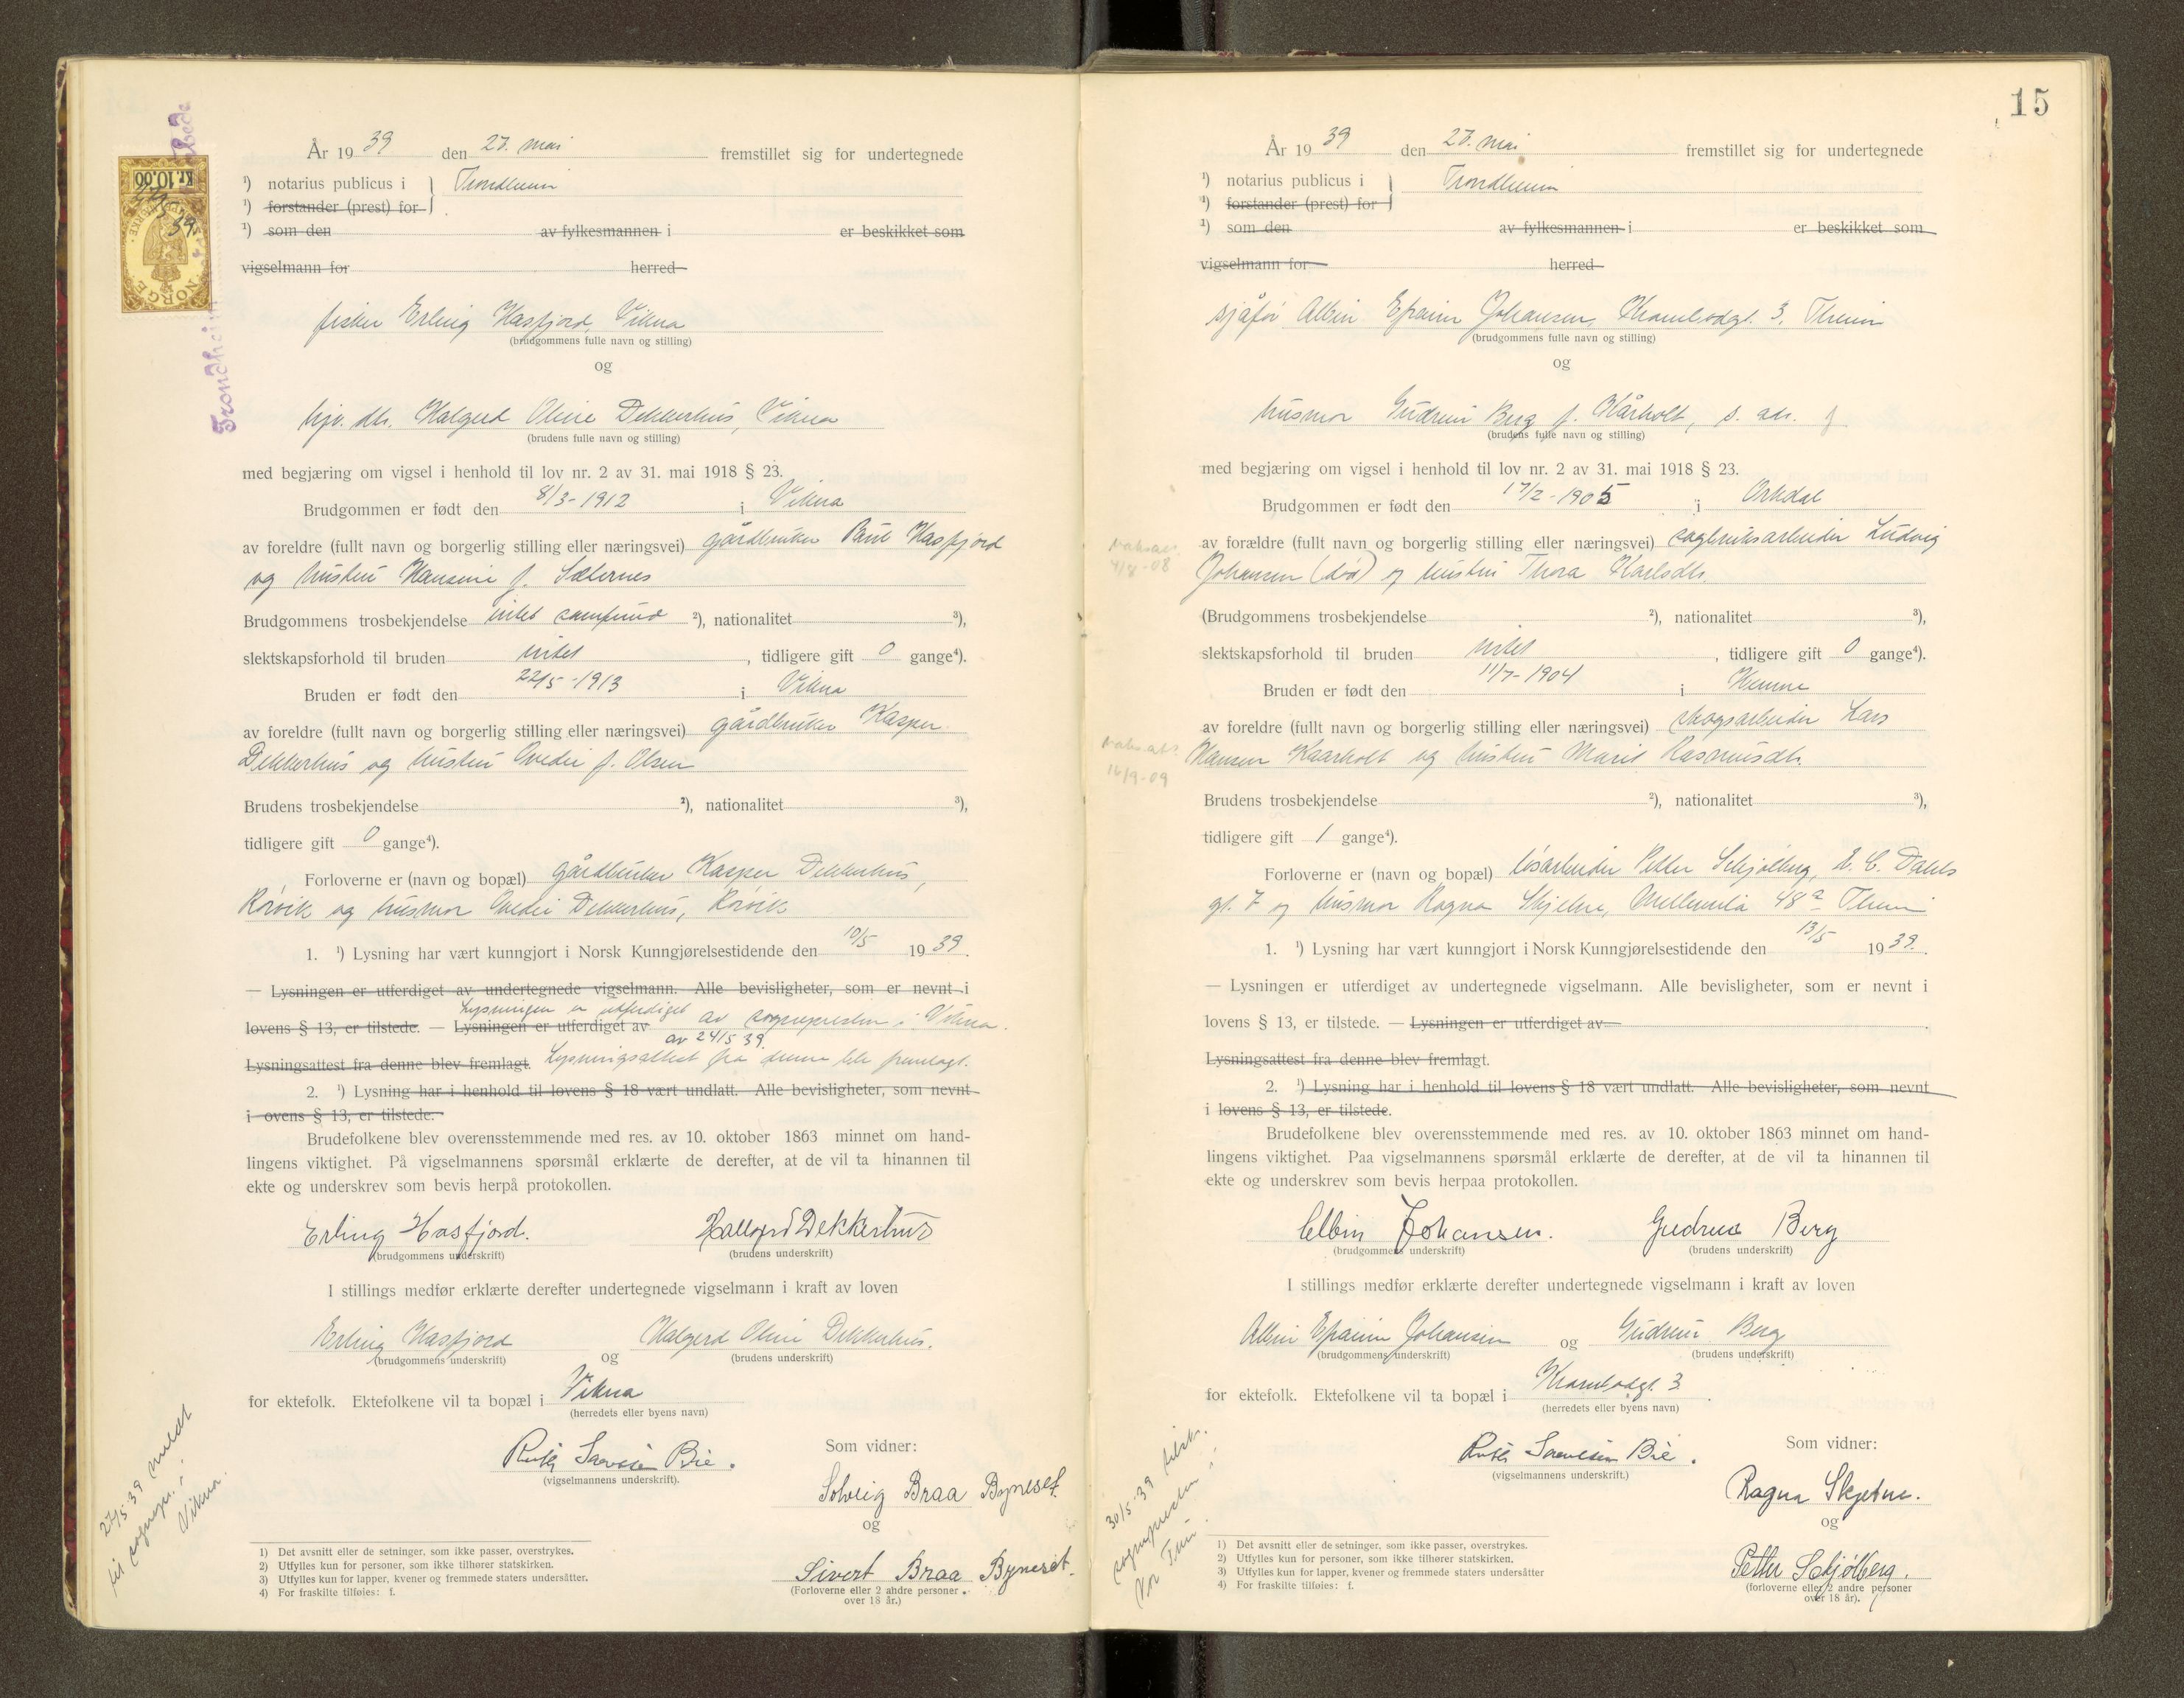 År 19 39 den 27. mai fremstillet sig for undertegnede
¹) notarius publicus i } Trondheim
¹) forstander (prest) for
¹) som den av fylkesmannen i er beskikket som
vigselmann for herred
Kr. 10.00
27/5 39
NORGE
Trondheim
fisker Erling Hasfjord, Vikna
(brudgommens fulle navn og stilling)
og
hjv. dtr. Halgerd Oline Dekkerhus, Vikna
(brudens fulle navn og stilling)
med begjæring om vigsel i henhold til lov nr. 2 av 31. mai 1918 § 23.
Brudgommen er født den 8/3-1912 i Vikna
av foreldre (fullt navn og borgerlig stilling eller næringsvei) gårdbruker Paul Hasfjord
og hustru Hansine f. Sælernes
Brudgommens trosbekjendelse intet samfund ²), nationalitet ³),
slektskapsforhold til bruden intet, tidligere gift 0 gange⁴).
Bruden er født den 22/5-1913 i Vikna
av foreldre (fullt navn og borgerlig stilling eller næringsvei) gårdbruker Kasper
Dekkerhus og hustru Ovedie f. Olsen
Brudens trosbekjendelse ²), nationalitet ³),
tidligere gift 0 gange⁴).
Forloverne er (navn og bopæl) gårdbruker Kasper Dekkerhus,
Rørvik og husmor Ovedie Dekkerhus, Rørvik
1. ¹) Lysning har vært kunngjort i Norsk Kunngjørelsestidende den 10/5 1939.
— Lysningen er utferdiget av undertegnede vigselmann. Alle bevisligheter, som er nevnt i
Lysningen er utferdiget
lovens § 13, er tilstede. — Lysningen er utferdiget av av sognepresten i Vikna.
av 24/5 39.
Lysningsattest fra denne blev fremlagt. Lysningsattest fra denne ble fremlagt.
2. ¹) Lysning har i henhold til lovens § 18 vært undlatt. Alle bevisligheter, som nevnt
i ovens § 13, er tilstede.
Brudefolkene blev overensstemmende med res. av 10. oktober 1863 minnet om hand-
lingens viktighet. På vigselmannens spørsmål erklærte de derefter, at de vil ta hinannen til
ekte og underskrev som bevis herpå protokollen.
Erling Hasfjord. Hallgerd Dekkerhus
(brudgommens underskrift) (brudens underskrift)
I stillings medfør erklærte derefter undertegnede vigselmann i kraft av loven
Erling Hasfjord og Halgerd Oline Dekkerhus.
(brudgommens underskrift) (brudens underskrift)
for ektefolk. Ektefolkene vil ta bopæl i Vikna
(herredets eller byens navn)
Ruth Sørensen Bie.
(vigselmannens underskrift).
Som vidner:
Solveig Braa Byneset.
og
Sivert Braa Byneset.
(Forloverne eller 2 andre personer
over 18 år.)
27/5 39 meldt
til sognepr. i
Vikna.
1) Det avsnitt eller de setninger, som ikke passer, overstrykes.
2) Utfylles kun for personer, som ikke tilhører statskirken.
3) Utfylles kun for lapper, kvener og fremmede staters undersåtter.
4) For fraskilte tilføies: f.
15
År 19 39 den 27. mai fremstillet sig for undertegnede
¹) notarius publicus i } Trondheim
¹) forstander (prest) for
¹) som den av fylkesmannen i er beskikket som
vigselmann for herred
sjåfør Albin Efraim Johansen, Krambodgt. 3, Trheim
(brudgommens fulle navn og stilling)
og
husmor Gudrun Berg f. Kårholt, s. adr.
(brudens fulle navn og stilling)
med begjæring om vigsel i henhold til lov nr. 2 av 31. mai 1918 § 23.
Brudgommen er født den 17/2-1905 i Orkdal
av forældre (fullt navn og borgerlig stilling eller næringsvei) sagbruksarbeider Ludvig
Johansen (død) og hustru Thora Karlsdtr.
(Brudgommens trosbekjendelse ²), nationalitet ³),
slektskapsforhold til bruden intet, tidligere gift 0 gange⁴).
Bruden er født den 11/7-1904 i Hemne
av foreldre (fullt navn og borgerlig stilling eller næringsvei) skogsarbeider Lars
Hansen Kaarholt og hustru Marit Rasmusdtr.
Brudens trosbekjendelse ²), nationalitet ³),
tidligere gift 1 gange⁴).
Forloverne er (navn og bopæl) løsarbeider Petter Schjølberg, E. C. Dahls
gt. 7 og husmor Ragna Skjetne, Mellemila 48 a Trheim
1. ¹) Lysning har vært kunngjort i Norsk Kunngjørelsestidende den 13/5 1939.
— Lysningen er utferdiget av undertegnede vigselmann. Alle bevisligheter, som er nevnt i
lovens § 13, er tilstede. — Lysningen er utferdiget av
Lysningsattest fra denne blev fremlagt.
2. ¹) Lysning har i henhold til lovens § 18 vært undlatt. Alle bevisligheter, som nevnt
i lovens § 13, er tilstede.
Brudefolkene blev overensstemmende med res. av 10. oktober 1863 minnet om hand-
lingens viktighet. Paa vigselmannens spørsmål erklærte de derefter, at de vil ta hinannen til
ekte og underskrev som bevis herpaa protokollen.
Albin Johansen. Gudrun Berg
(brudgommens underskrift) (brudens underskrift)
I stillings medfør erklærte derefter undertegnede vigselmann i kraft av loven
Albin Efraim Johansen og Gudrun Berg
(brudgommens underskrift) (brudens underskrift)
for ektefolk. Ektefolkene vil ta bopæl i Krambodgt. 3.
(herredets eller byens navn)
Ruth Sørensen Bie.
(vigselmannens underskrift.)
Som vidner:
Ragna Skjetne.
og
Petter Schjølberg.
(forloverne eller 2 andre personer
over 18 år).
Vaksatt.
4/8-08
Vaksatt.
16/9-09
30/5-39
sognepresten i
Vor
1) Det avsnitt eller de setninger, som ikke passer, overstrykes.
2) Utfylles kun for personer, som ikke tilhører statskirken.
3) Utfylles kun for lapper, kvener og fremmede staters undersåtter
4) For fraskilte tilføies: f.